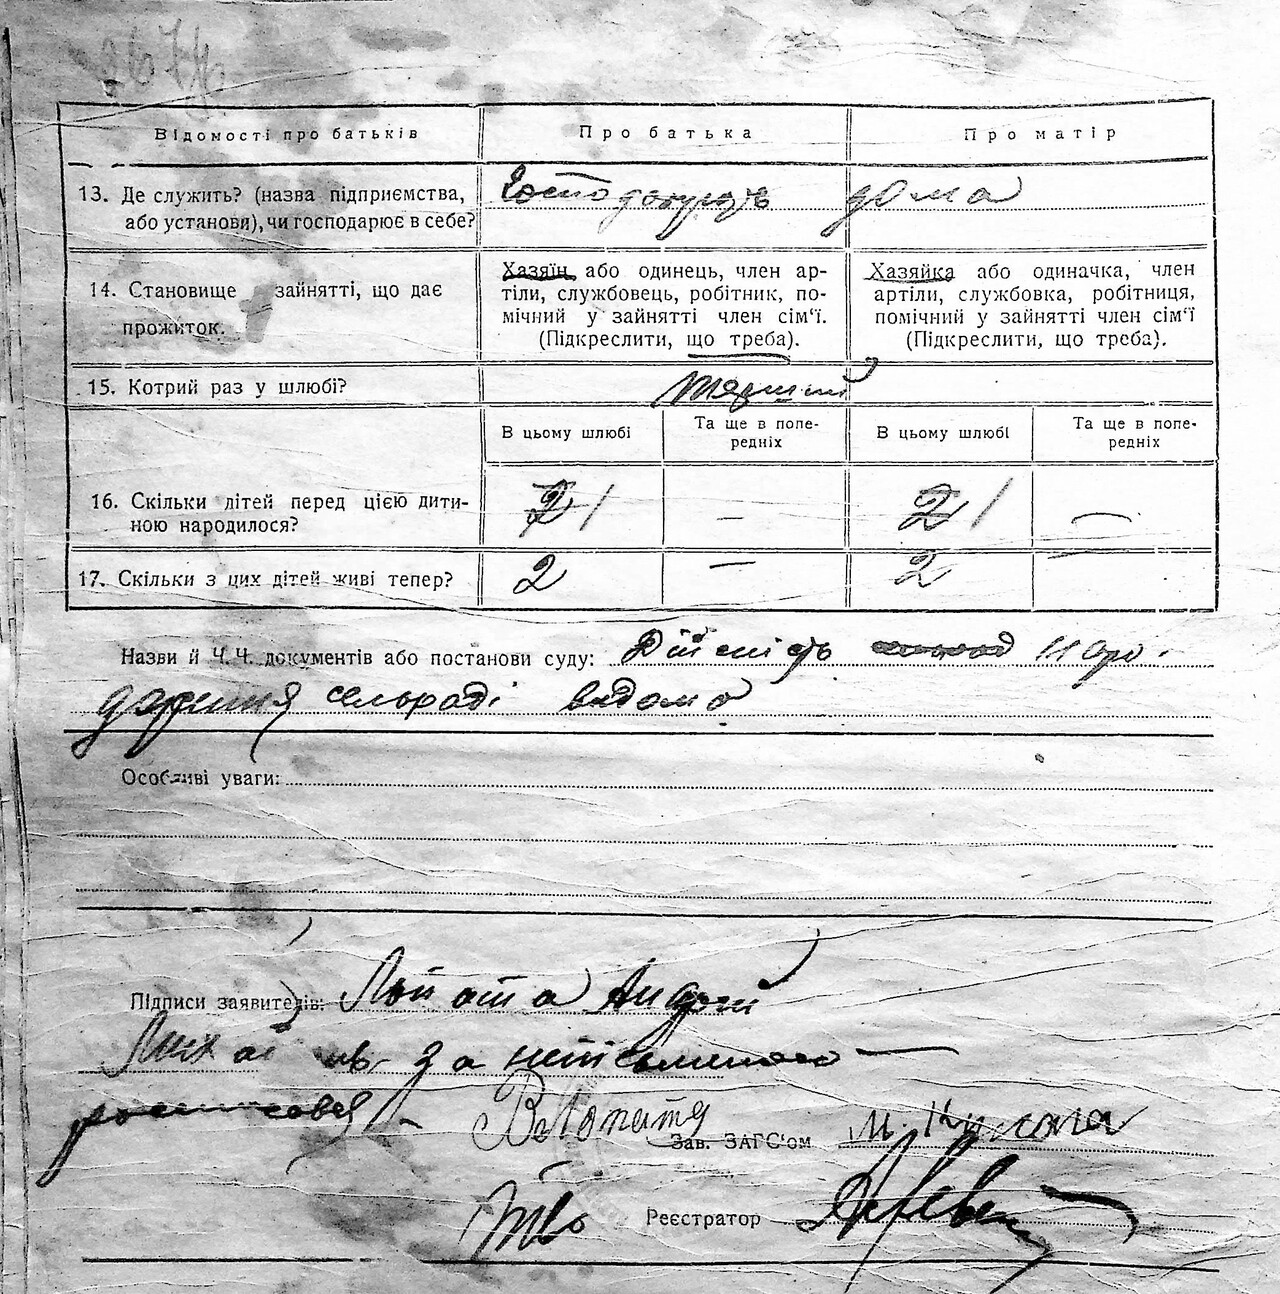 Відомості про батьків Про батька Про матір
13. Де служить? (назва підприємства, або установи), чи господарює в себе? Господарують дома
14. Становище зайнятті, що дає прожиток.
Хазяїн або одинець, член ар-
тіли, службовець, робітник, по-
мічний у зайнятті член сім‘ї.
(Підкреслити, що треба).
Хазяйка або одиначка, член
артіли, службовка, робітниця,
помічний у зайнятті член сім‘ї
(Підкреслити, що треба).
15. Котрий раз у шлюбі? перший
В цьому шлюбі Та ще в попе-редніх В цьому шлюбі Та ще в попе-редніх
16. Скільки дітей перед цією дити-
ною народилося? 2 1 — 2 1 —
17. Скільки з цих дітей живі тепер? 2 — 2
Назви й Ч.Ч. документів або постанови суду: Дійсність наро-
дження сельраді відомо
Особливі уваги:
Підписи заявителів: Лопата Андрій
за неписьменного
росписався В Лопата
Зав. ЗАГС‘ом
Реєстратор